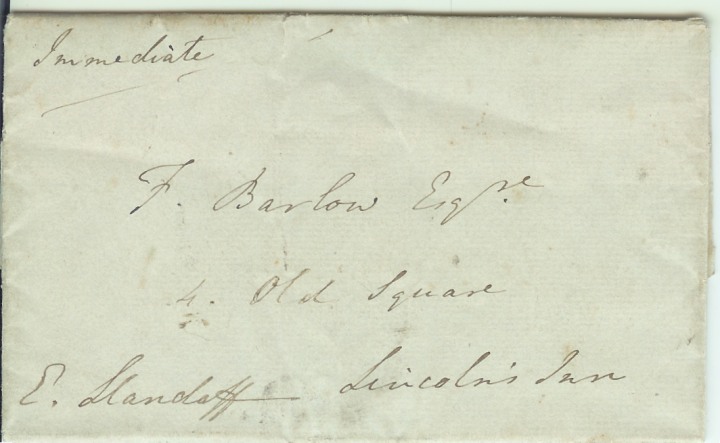 Immediate
F. Barlow Esqre
4. Old Square
Lincoln's Inn
E. Llandaff